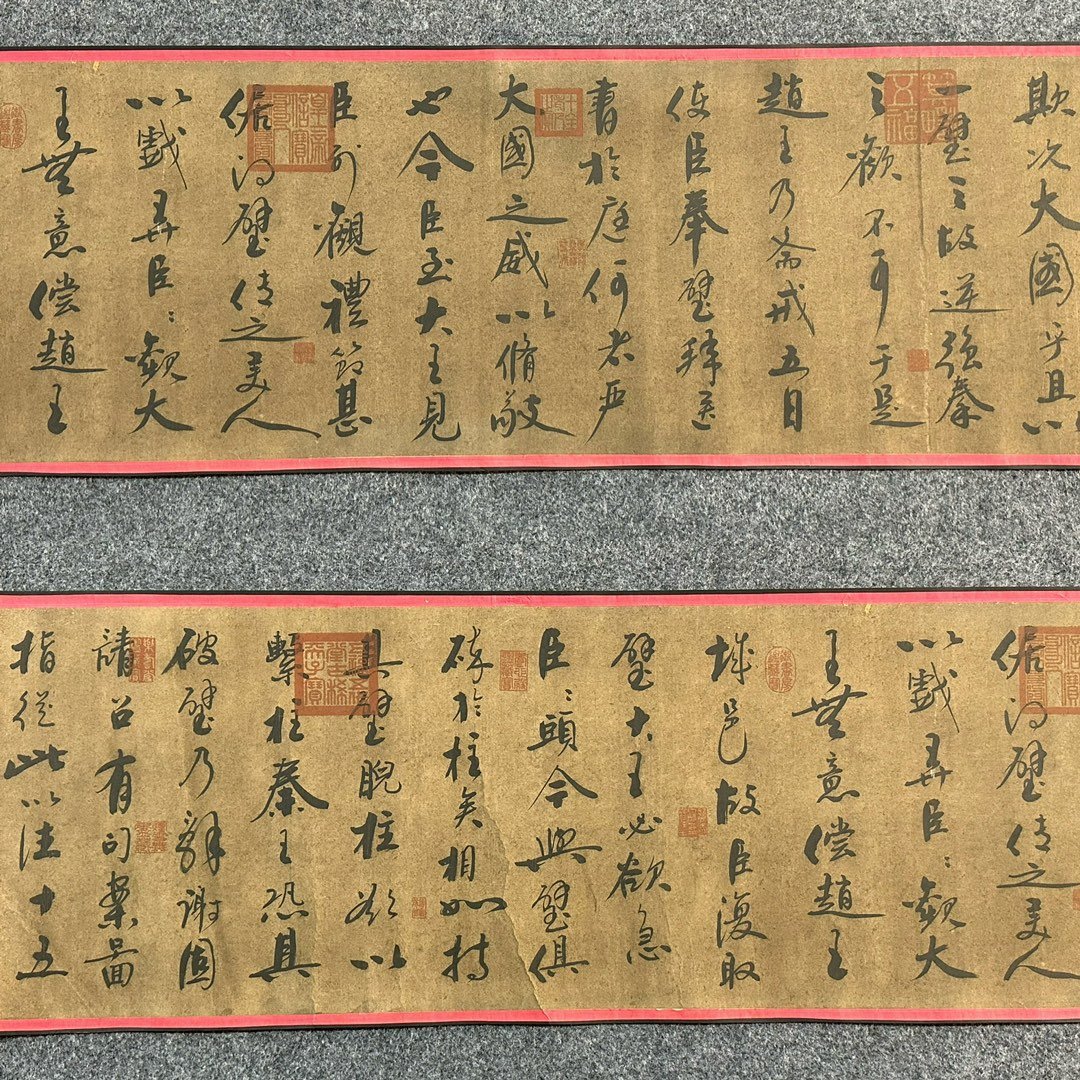 欺况大國乎且以
一璧之故逆强秦
之歡不可于是
趙王乃斋戒五日
使臣奉璧拜送
書於庭何者严
大國之威以脩敬
也今臣至大王見
臣列觀禮節甚
倨得璧傳之美人
以戲弄臣〻觀大
王無意偿趙王
倨得璧傳之美人
以戲弄臣〻觀大
王無意偿趙王
城邑故臣復取
璧大王必欲急
臣〻頭今與璧俱
碎於柱矣相如持
其璧睨柱欲以
擊柱秦王恐其
破璧乃辞謝固
請召有司案圖
指從此以往十五